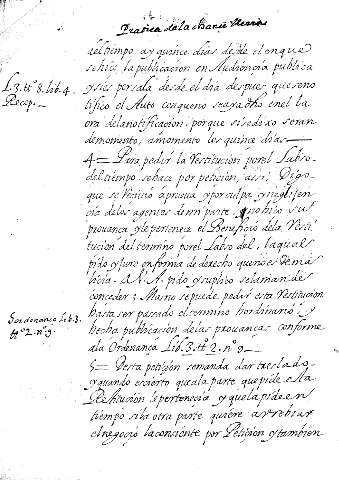 Pratica de la Chancilleria
del tiempo ay quince dias desde el en que
se hiço la publicacion en Audiencia publica
L. 3. tt.º 8. lib. 4. y si es por sala desde el dia despues que se no
Recop. tifico el Auto conque no seaya dho en el la
ora de la notificacion; porque si se dixo seran
de momento, a momento los quince dias
4 = Para pedir la Restitucion por el Labso
del tiempo se hace por peticion, assi: Digo
que se recivio a prueva y por culpa y neglijen
cia de los agentes de mi parte no hiço su
provança y le pertenece el Beneficio de la Resti
tucion del termino por el Labso del, la qual
pido y juro en forma de derecho que no es de ma
licia. A V. A. pido y suplico se la mande
conceder; Mas no se puede pedir esta Restitucion
hasta ser pasado el termino hordinario y
Son ordenança Lib. 3. hecha publicacion de las provanças conforme
tt.º 2. n.º 9. a la Ordenança Lib. 3. tt.º 2. n.º 9
5 = Desta peticion se manda dar traslado,
y quando es cierto que a la parte que pide esta
Restitucion le pertenecia y que la pide en
tiempo si la otra parte quiere abreviar
el negocio la consiente por Peticion y tambien